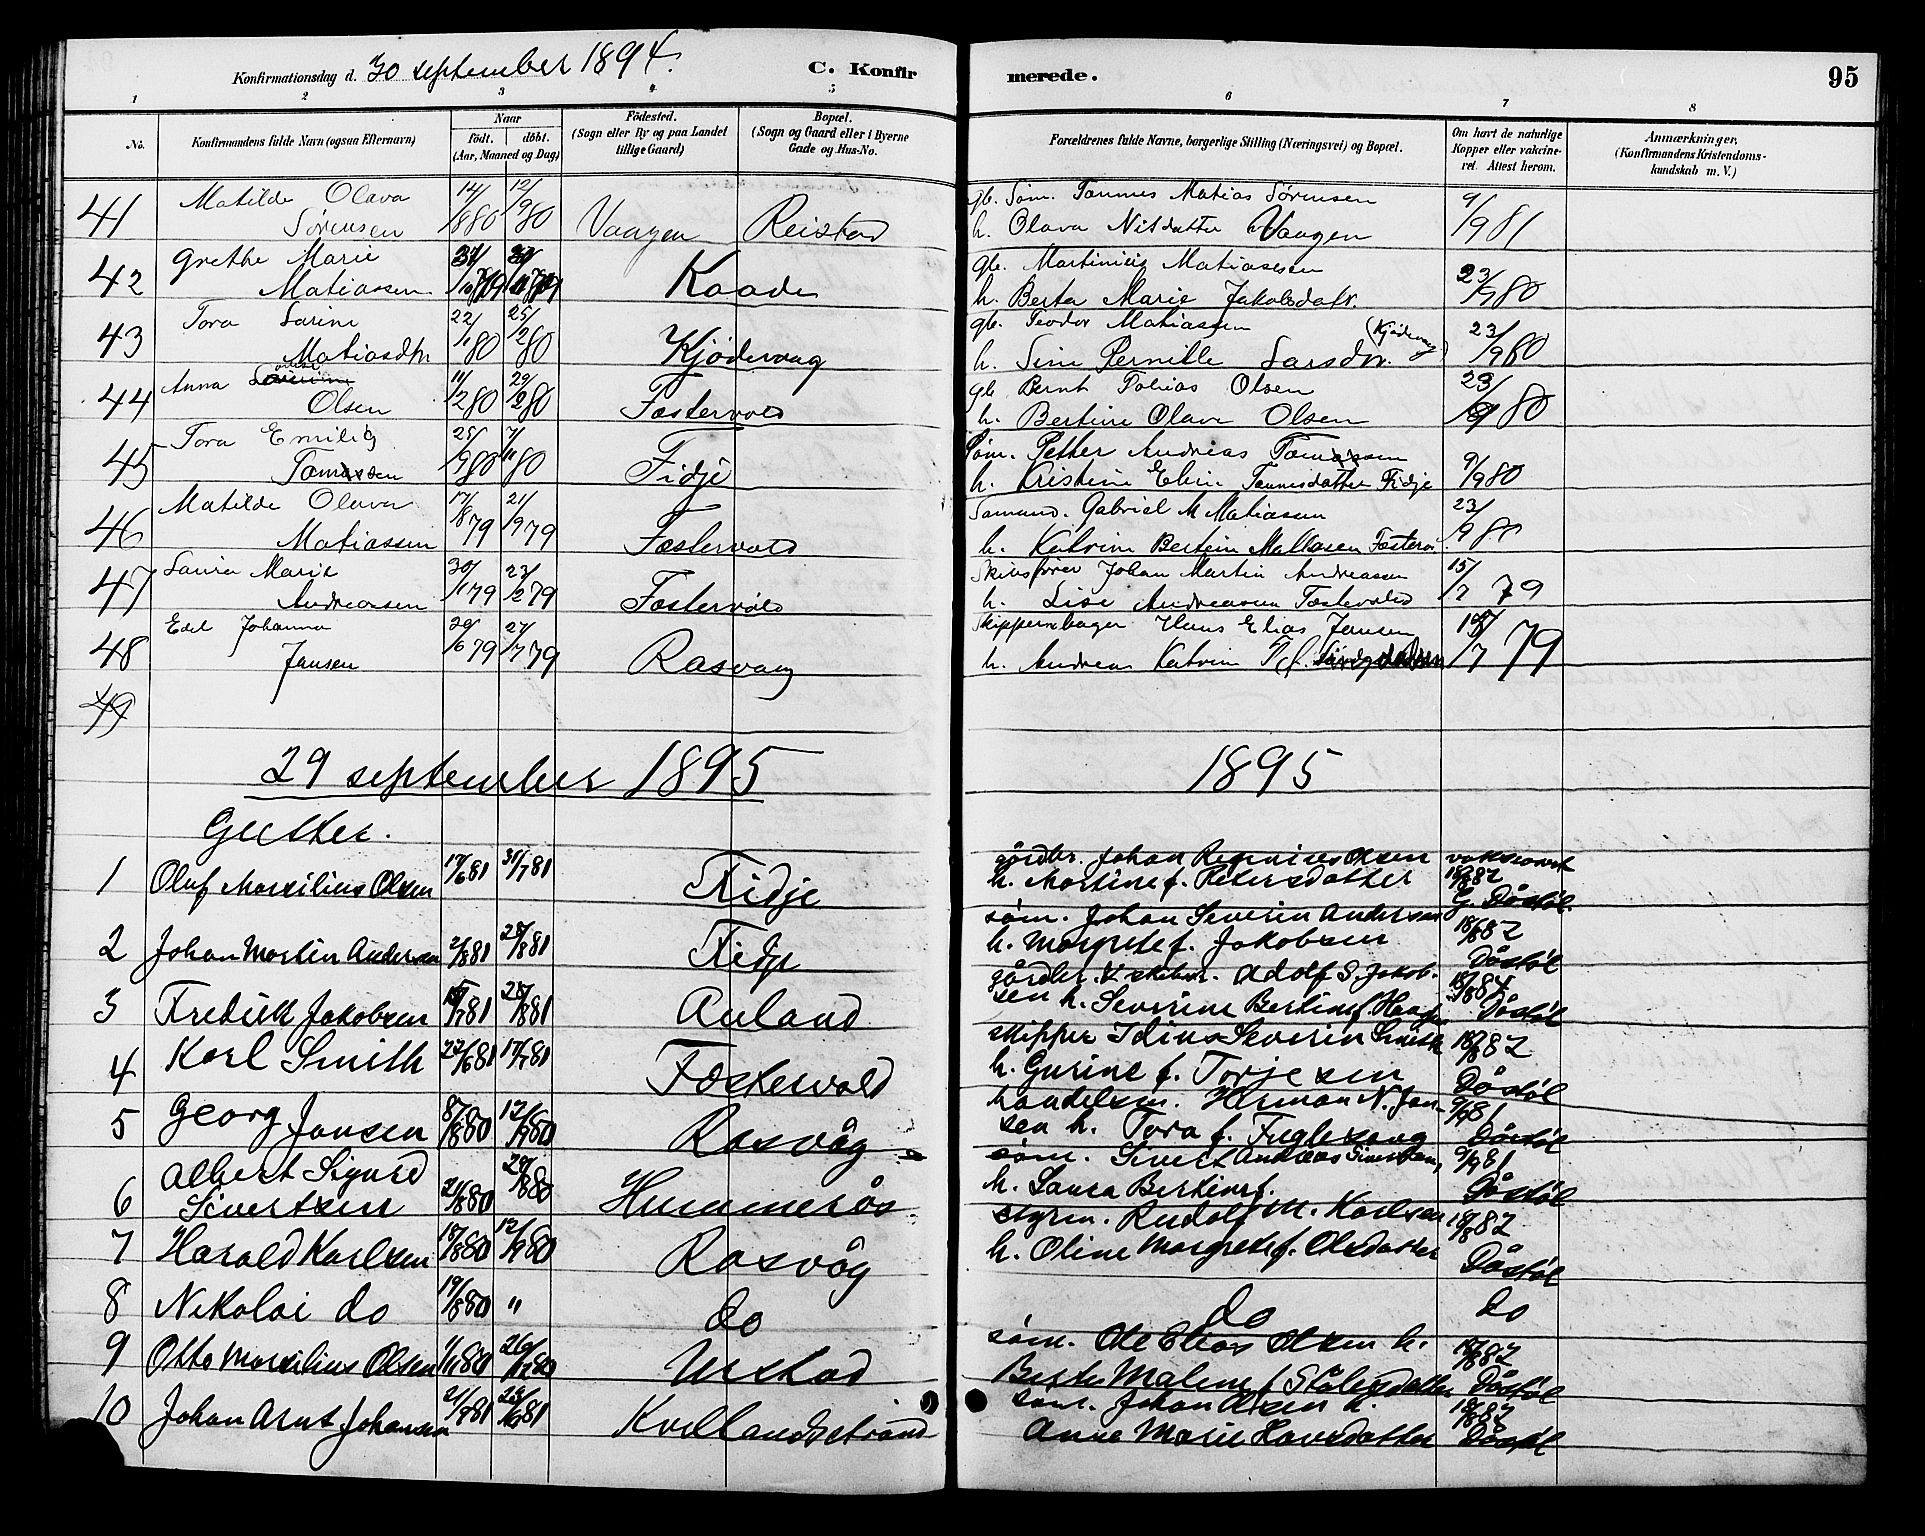 Konfirmationsdag d. 30 september 1894. C. Konfirmerede. 95
1 2 3 4 5 6 7 8
No. Konfirmandens fulde Navn (ogsaa Efternavn) Naar födt. döbt. (Aar, Maaned og Dag) Födested. (Sogn eller By og paa Landet tillige Gaard) Bopæl. (Sogn og Gaard eller i Byerne Gade og Hus-No. Forældrenes fulde Navne, borgerlige Stilling (Næringsvei) og Bopæl. Om havt de naturlige Kopper eller vakcineret. Attest herom. Anmærkninger, (Konfirmandens Kristendomskundskab m. V.)
41 Matilde Olava Sørensen 14/8 80 12/9 80 Vaagen Reistad gb. Søm. Tønnes Matias Sørensen
h. Olava Nilsdatter Vaagen 9/9 81
42 Grethe Marie Matiassen Kaade gb. Martinius Matiassen
h. Berta Marie Jakobsdatr. 23/9 80
43 Tora Larine Matiasdtr 22/1 80 25/2 80 Kjödevaag gb. Teodor Matiassen
h. Sine Pernille Larsdtr. (Kjödevaag) 23/9 80
44 Anna Olsen 11/2 80 29/2 80 Fæstervold gb. Bernt Tobias Olsen
h. Bertine Olava Olsen 23/9 80
45 Tora Emilie Tomassen 25/9 80 7/11 80 Fidje Søm. Petter Andreas Tomassen
h. Kristine Eline Tønnesdatter Fidje 9/9 80
46 Matilde Olava Matiassen 17/8 79 21/9 79 Fæstervold Sømand. Gabriel M Matiassen
h. Katrine Bertein Matiasen Fæstervo 23/9 80
47 Laura Marie Andreassen 30/1 79 23/2 79 Fæstervold Skibsfører Johan Martin Andreassen
h. Lise Andreasen Fæstervold 15/7 79
48 Edel Johanna Jansen 29/6 79 27/7 79 Rasvaag Skippersbager Hans Elias Jansen
h. Andrea Katrine 79
49
29 september 1895 1895
Gutter.
1 Oluf Marsilius Olsen 17/6 81 31/7 81 Fidje gårdbr. Johan Reginius Olsen
h. Martine f. Petersdatter vaksineret 18/8 82 G. Dåstøl.
2 Johan Martin Andersen 2/8 81 28/8 81 Fidje søm. Johan Severin Andersen
h. Margrete f. Jakobsen 18/8 82 Dåstøl
3 Fredrik Jakobsen 28/8 81 Auland gårdbr. & skibsr. Adolf S. Jakob-
sen h. Severine Bertine f. 18/8 84 Dåstøl
4 Karl Smith 22/6 81 17/7 81 Fæstervold skipper Idius Severin Smith
h. Gurine f. Torjesen 18/8 82 Dåstøl
5 Georg Jansen 8/8 80 12/9 80 Rasvåg handelsm. Herman N. Jan-
sen h. Tora f. Fuglevaag 9/9 81 Dåstøl
6 Albert Sigurd Sivertsen 21/8 80 29/8 80 Hummerås søm. Sivert Andreas Sivertsen,
h. Laura Bertine f. 9/9 81 Dåstøl
7 Harald Karlsen 18/8 80 12/9 80 Rasvåg styrm. Rudolf M. Karlsen
h. Oline Margrete f. Olsdatter 18/8 82 Dåstøl
8 Nikolai do 19/8 80 " do do do
9 Otto Marsilius Olsen 1/11 80 26/12 80 Urstad søm. Ole Elias Olsen h.
Berte Malene f Stålesdatter 18/8 82 Dåstøl
10 Johan Arnt Johansen 21/4 81 Kvellandstrand søm. Johan Olsen h.
Anne Marie Larsdatter 18/8 82 Dåstøl